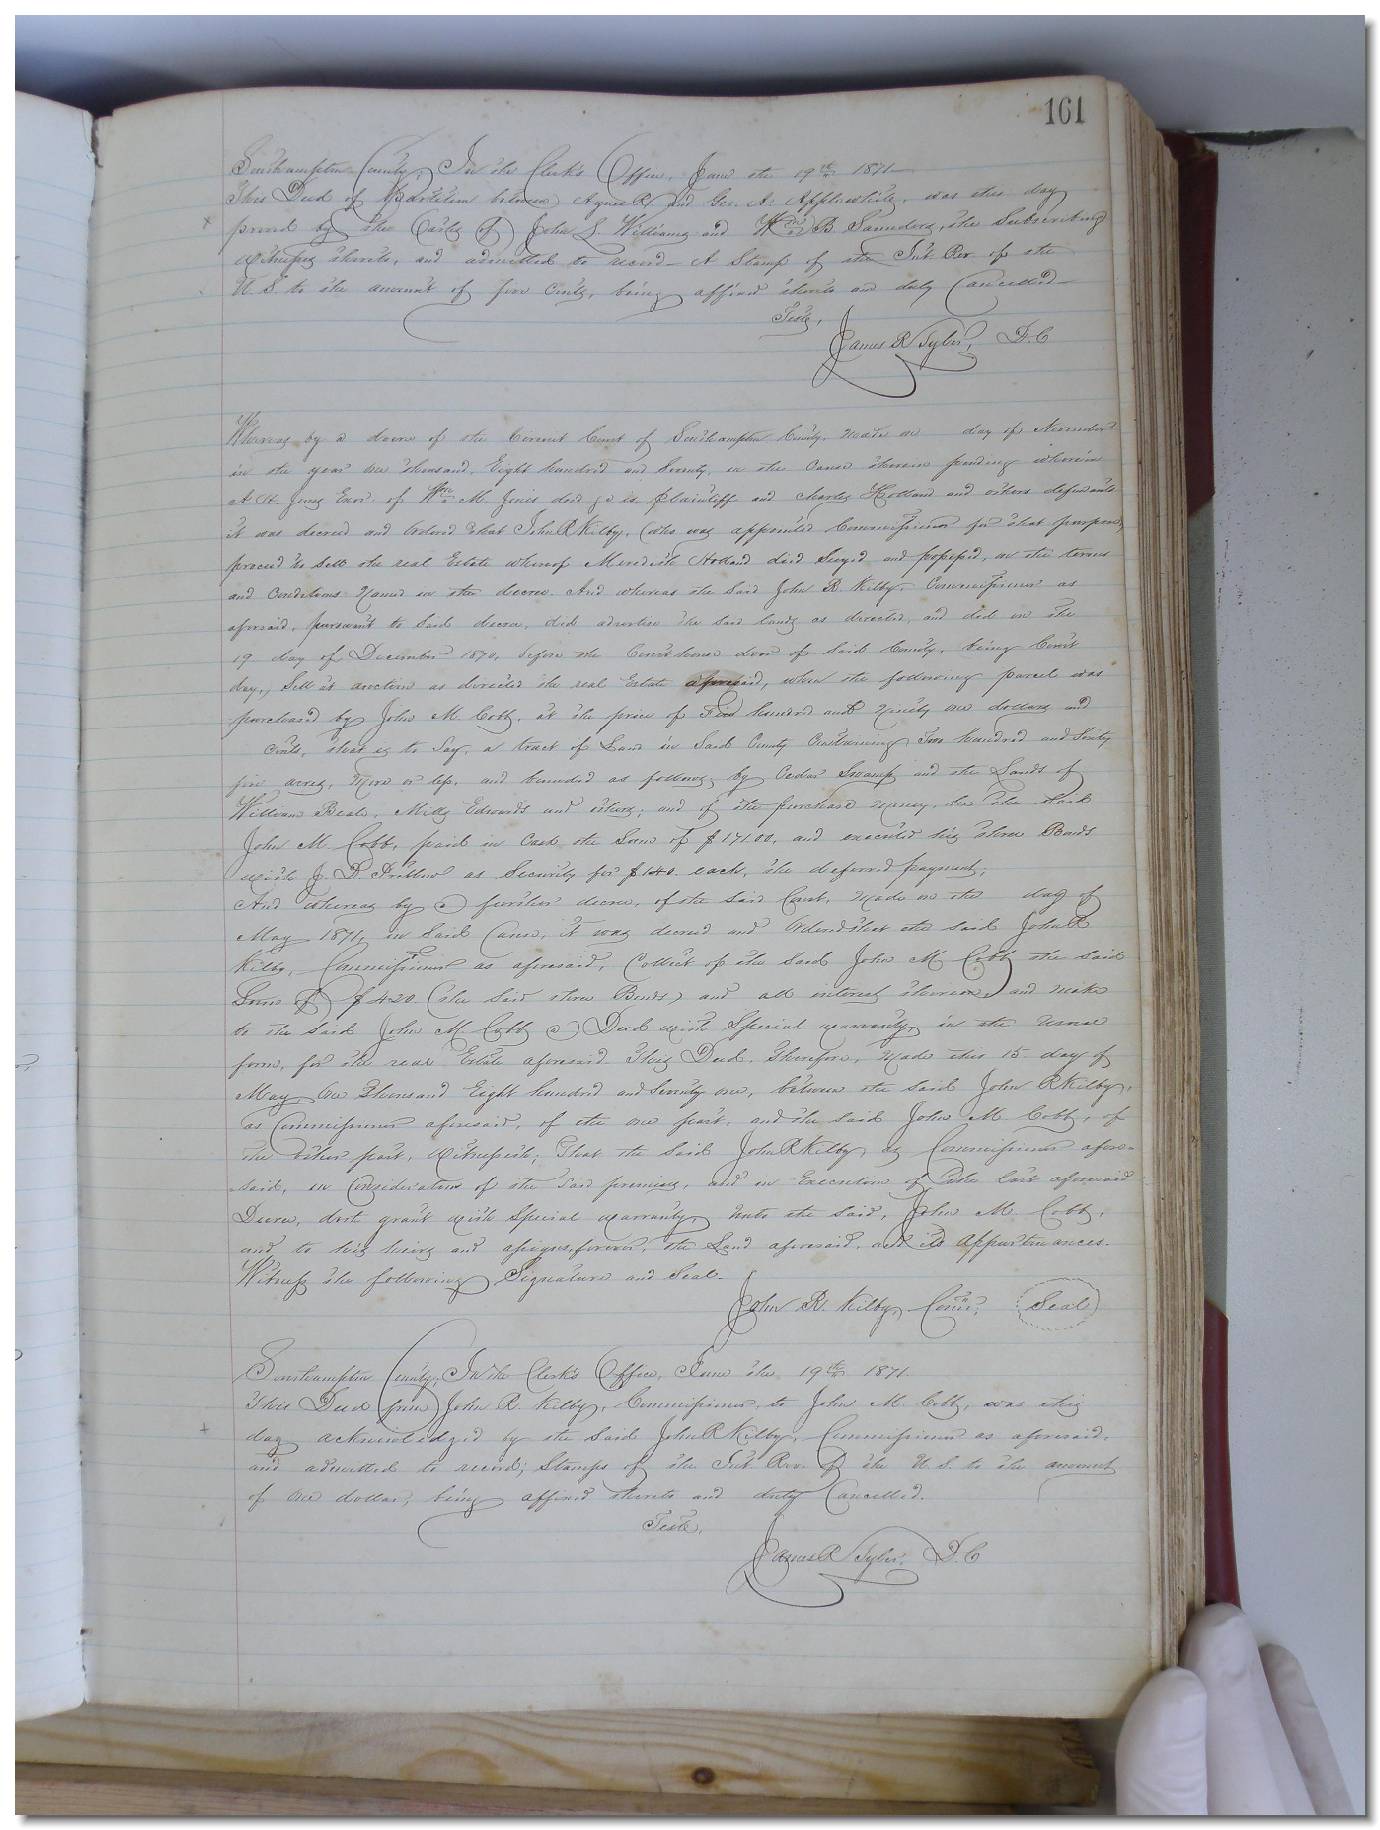 161
Southampton County, In the Clerk's Office, June the 19th 1871
This Deed of Partition between Agnes R, and Geo. A. Applewhite, was this day
proved by the Oaths of John S. Williams and Wm B. Saunders, the Subscribing
witnesses thereto, and admitted to record - A Stamp of the Int Rev of the
U.S. to the amount of five cents, being affixed thereto and duly Cancelled -
Teste,
James R Tyler, D.C
Whereas by a decree of the Circuit Court of Southampton County, made on day of November
in the year one thousand, Eight hundred and Seventy, in the Cause therein pending wherein
Jones Exor. of Wm M. Jones decd is plaintiff and Charles Holland and others defendants
it was decreed and Ordered that John R Kilby, (who was appointed Commissioner for that purpose,)
proceed to sell the real Estate whereof Meredith Holland died Seized and possessed, on the terms
and Conditions named in the decree. And whereas the said John R. Kilby, Commissioner as
aforesaid, pursuant to said decree, did advertise the said lands as directed, and did on the
19 day of December 1870, before the Court house door of said County, being Court
day, Sell at auction as directed the real Estate aforesaid, when the following parcel was
purchased by John M. Cobb, at the price of Five hundred and ninety one dollars and
Cents, that is to say, a tract of Land in said County Containing Two hundred and Sixty
five acres, more or less, and bounded as follows, by Cedar Swamp and the Lands of
William Beale, Mills Edwards and others; and of the purchase money, he the said
John M. Cobb, paid in Cash the Sum of $171.00, and executed his three Bonds
with J. D. as Security for $140. each, the deferred payment;
And whereas by a further decree, of the said Court, made on the day of
May 1871, in said Cause, it was decreed and Ordered that the said John R
Kilby, Commissioner as aforesaid, Collect of the said John M Cobb the said
Sum of $420 (the said three Bonds) and all interest thereon, and make
to the said John M Cobb a Deed with Special warranty, in the usual
form, for the real Estate aforesaid. This Deed, therefore, made this 15 day of
May One Thousand Eight hundred and Seventy one, between the said John R Kilby,
as Commissioner aforesaid, of the one part, and the said John M. Cobb, of
the other part, Witnesseth; That the said John R Kilby, as Commissioner afore-
said, in Consideration of the said premises, and in Execution of the last aforesaid
Decree, doth grant with Special warranty, unto the said, John M. Cobb,
and to his heirs and assigns forever, the Land aforesaid, and its Appurtenances.
Witness the following Signature and Seal.
John R. Kilby, Comr, Seal
Southampton County, In the Clerk's Office, June the 19th 1871
This Deed from John R. Kilby, Commissioner, to John M. Cobb, was this
day acknowledged by the said John R Kilby, Commissioner as aforesaid,
and admitted to record; Stamps of the Int Rev. of the U.S. to the amount
of one dollar, being affixed thereto and duly Cancelled.
Teste,
James R Tyler, D.C